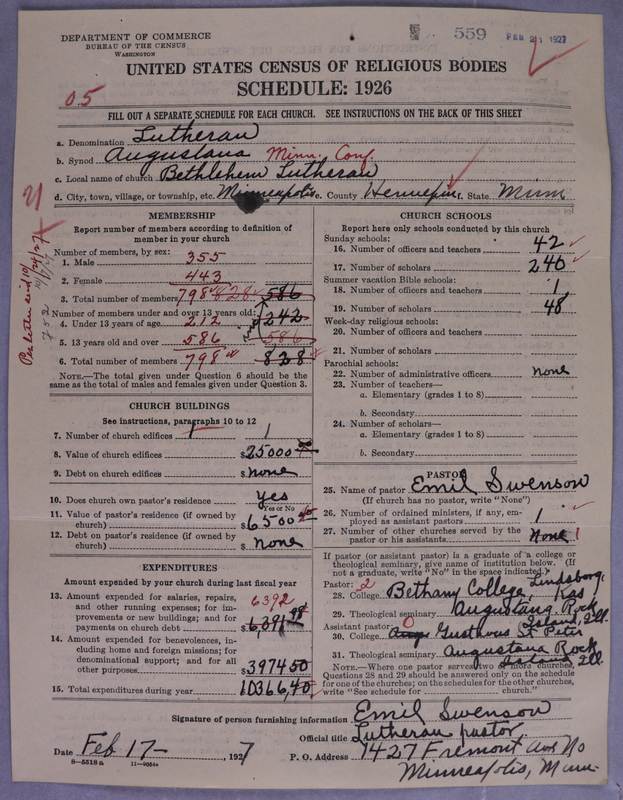 DEPARTMENT OF COMMERCE
BUREAU OF THE CENSUS
WASHINGTON
559 FEB 21 1927
UNITED STATES CENSUS OF RELIGIOUS BODIES
SCHEDULE: 1926
05
FILL OUT A SEPARATE SCHEDULE FOR EACH CHURCH. SEE INSTRUCTIONS ON THE BACK OF THIS SHEET
a. Denomination Lutheran
b. Synod Augustana Minn. Conf.
c. Local name of church Bethlehem Lutheran
d. City, town, village, or township, etc. Minneapolis e. County Hennepin f. State Minn
Per letter recd 10/24/27
MEMBERSHIP
Report number of members according to definition of member in your church
Number of members, by sex:
1. Male 355
2. Female 443
3. Total number of members 798 828 586
Number of members under and over 13 years old:
4. Under 13 years of age 212 242
5. 13 years old and over 586 586
6. Total number of members 798 828
NOTE.—The total given under Question 6 should be the
same as the total of males and females given under Question 3.
CHURCH BUILDINGS
See instructions, paragraphs 10 to 12
7. Number of church edifices 1
8. Value of church edifices $25000
9. Debt on church edifices $None
10. Does church own pastor's residence yes
Yes or No
11. Value of pastor's residence (if owned by
church) $6500
12. Debt on pastor's residence (if owned by
church) $None
EXPENDITURES
Amount expended by your church during last fiscal year
13. Amount expended for salaries, repairs, 6392
and other running expenses; for im-
provements or new buildings; and for
payments on church debt $6,391.98
14. Amount expended for benevolences, in-
cluding home and foreign missions; for
denominational support; and for all
other purposes $397450
15. Total expenditures during year 10366,40
CHURCH SCHOOLS
Report here only schools conducted by this church
Sunday schools:
16. Number of officers and teachers 42
17. Number of scholars 240
Summer vacation Bible schools:
18. Number of officers and teachers 1
19. Number of scholars 48
Week-day religious schools:
20. Number of officers and teachers
21. Number of scholars
Parochial schools:
22. Number of administrative officers none
23. Number of teachers—
a. Elementary (grades 1 to 8)
b. Secondary
24. Number of scholars—
a. Elementary (grades 1 to 8)
b. Secondary
PASTOR
25. Name of pastor Emil Swenson
(If church has no pastor, write "None")
26. Number of ordained ministers, if any, em-
ployed as assistant pastors 1
27. Number of other churches served by the
pastor or his assistants None 1
If pastor (or assistant pastor) is a graduate of a college or
theological seminary, give name of institution below. (If
not a graduate, write "No" in the space indicated.)
Pastor: 2
28. College Bethany College, Lindsborg, Kas
29. Theological seminary Augustana Rock Island, Ill.
Assistant pastor: 0
30. College Gusthous St Peter
31. Theological seminary Augustana Rock Island Ill.
NOTE.—Where one pastor served two or more churches,
Questions 28 and 29 should be answered only on the schedule
for one of the churches; on the schedules for the other churches,
write "See schedule for church."
Signature of person furnishing information Emil Swenson
Official title Lutheran pastor
Date Feb 17- , 1927 P. O. Address 1427 Fremont Ave No
Minneapolis, Minn.
8—5518a 11—9054a